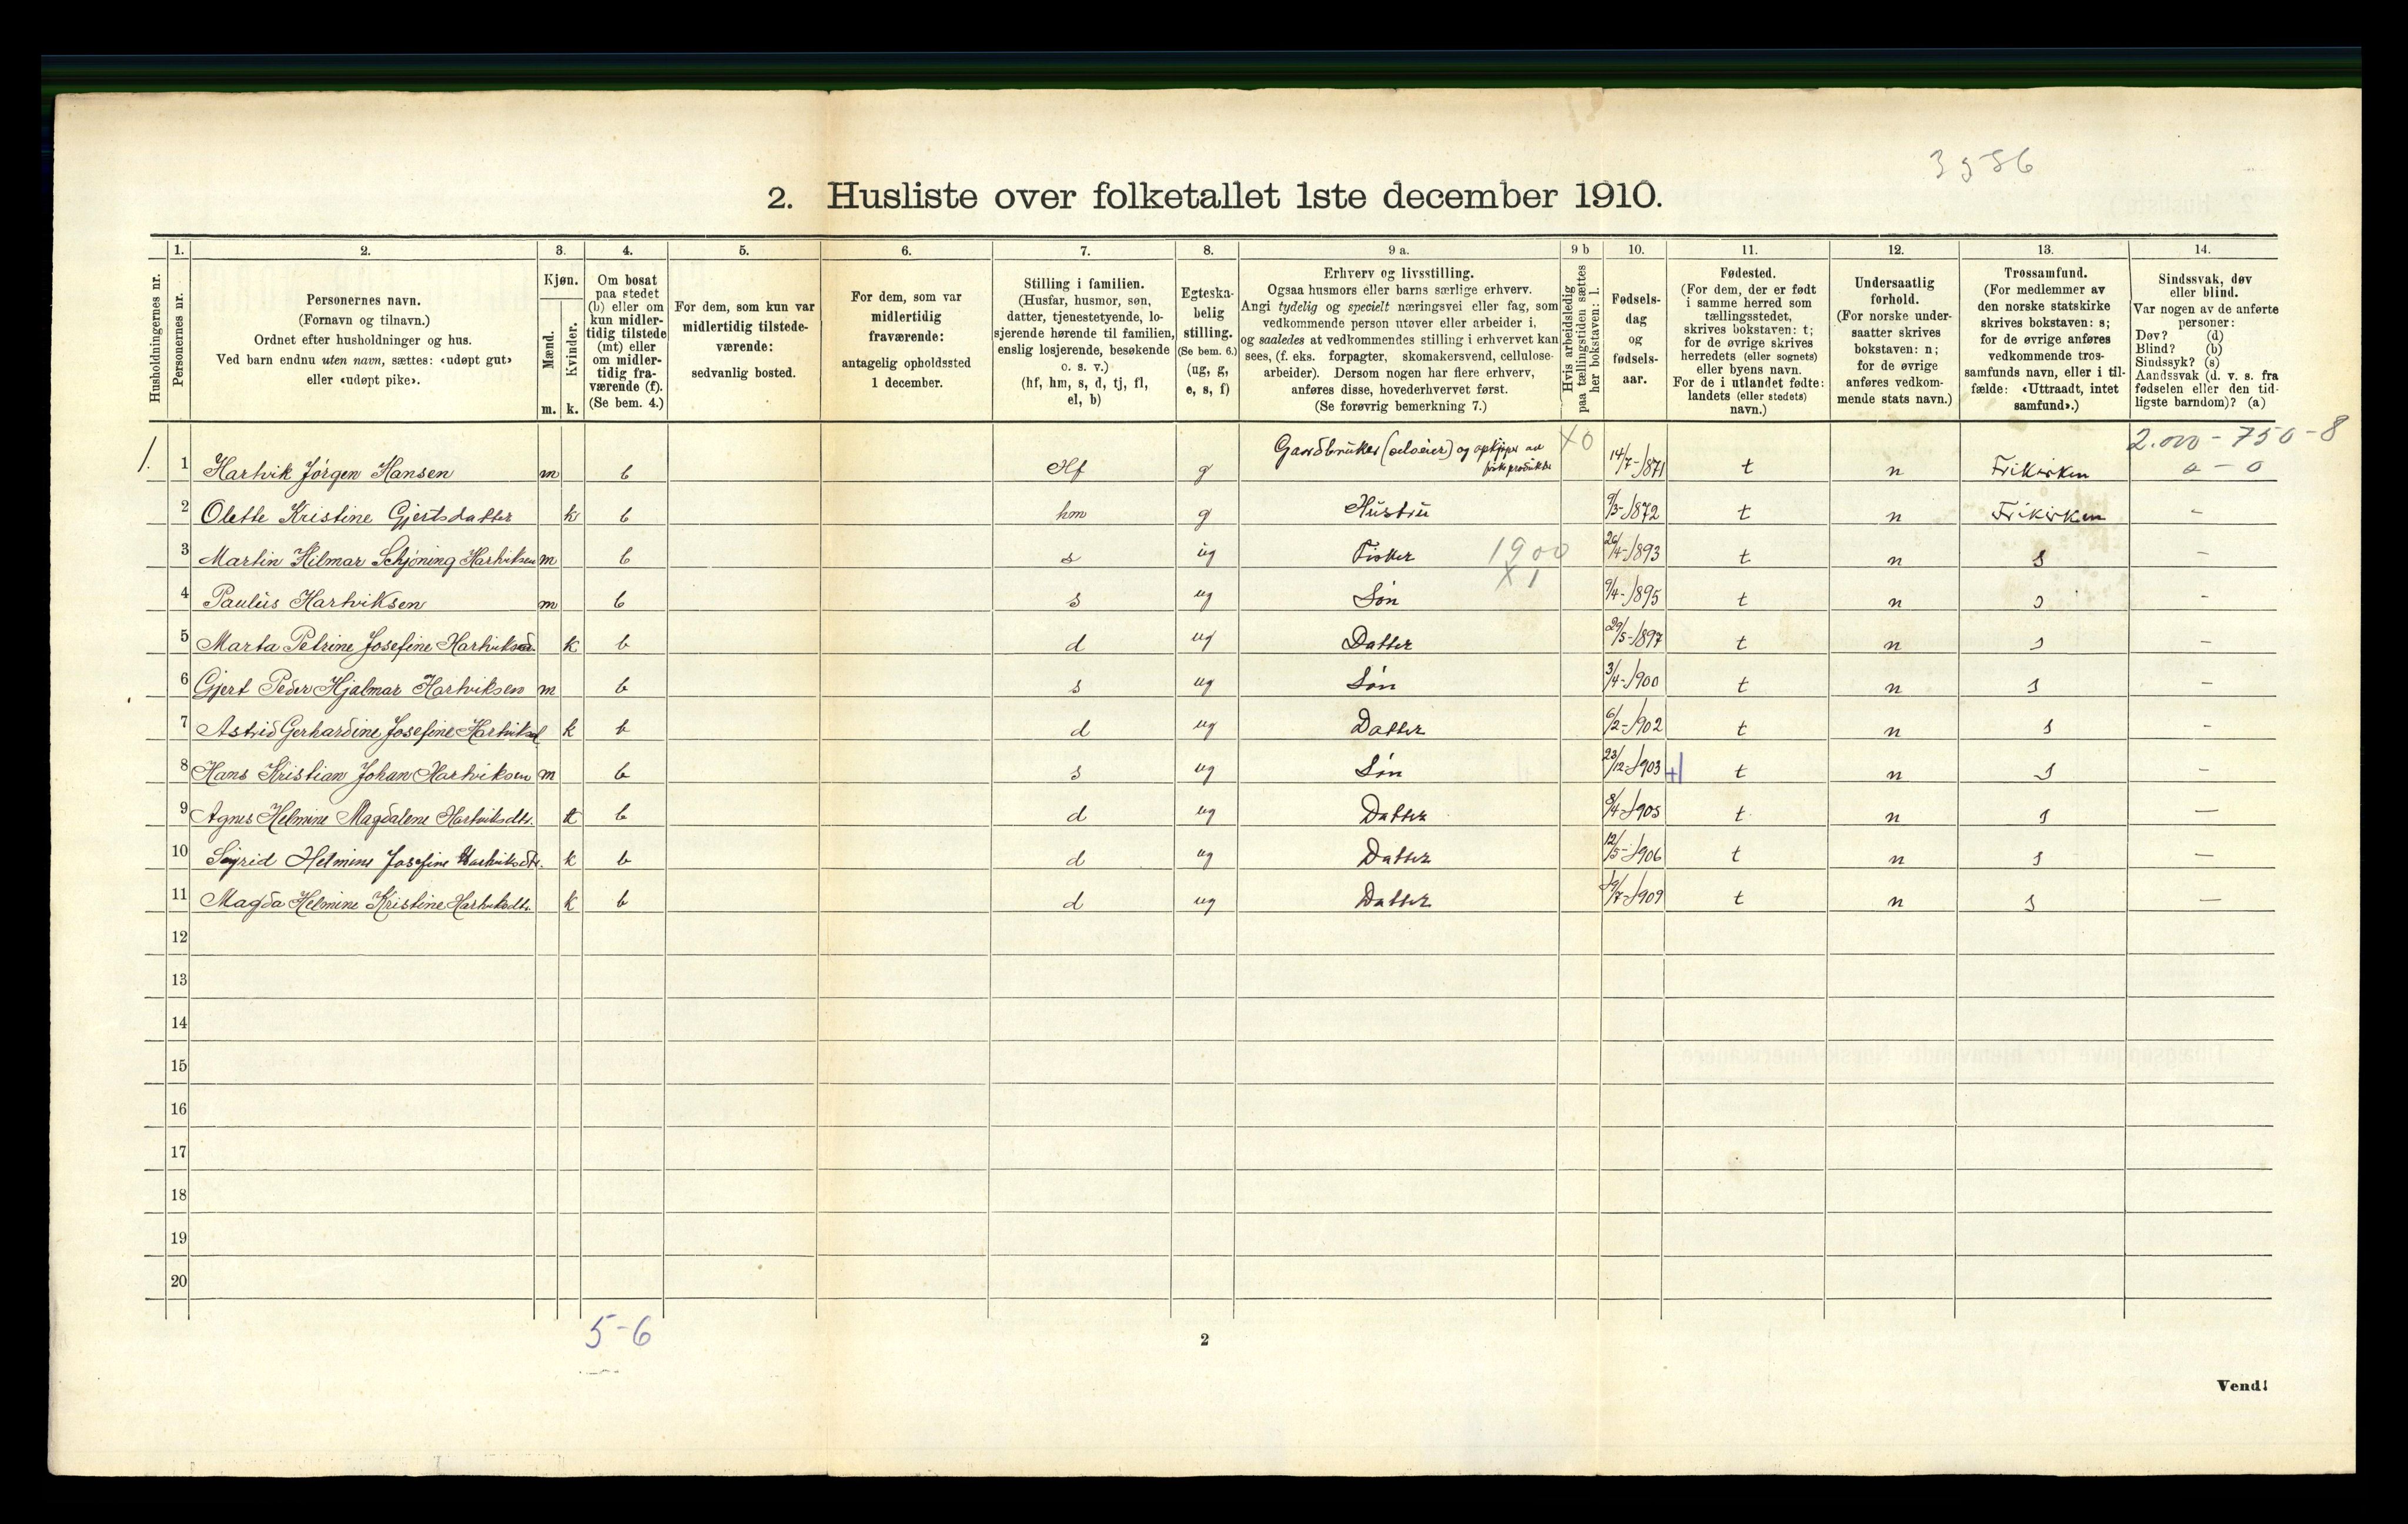 3586
2. Husliste over folketallet 1ste december 1910.
1. 2. 3. 4. 5. 6. 7. 8. 9 a. 9 b 10. 11. 12. 13. 14.
Husholdningernes nr.
Personernes nr.
Personernes navn.
(Fornavn og tilnavn.)
Ordnet efter husholdninger og hus.
Ved barn endnu uten navn, sættes: «udøpt gut»
eller «udøpt pike».
Kjøn.
Mænd.
Kvinder.
m. k.
Om bosat
paa stedet
(b) eller om
kun midler-
tidig tilstede
(mt) eller
om midler-
tidig fra-
værende (f).
(Se bem. 4.)
For dem, som kun var
midlertidig tilstede-
værende:
sedvanlig bosted.
For dem, som var
midlertidig
fraværende:
antagelig opholdssted
1 december.
Stilling i familien.
(Husfar, husmor, søn,
datter, tjenestetyende, lo-
sjerende hørende til familien,
enslig losjerende, besøkende
o. s. v.)
(hf, hm, s, d, tj, fl,
el, b)
Egteska-
belig
stilling.
(Se bem. 6.)
(ug, g,
e, s, f)
Erhverv og livsstilling.
Ogsaa husmors eller barns særlige erhverv.
Angi tydelig og specielt næringsvei eller fag, som
vedkommende person utøver eller arbeider i,
og saaledes at vedkommendes stilling i erhvervet kan
sees, (f. eks. forpagter, skomakersvend, cellulose-
arbeider). Dersom nogen har flere erhverv,
anføres disse, hovederhvervet først.
(Se forøvrig bemerkning 7.)
Hvis arbeidsledig
paa tællingstiden sættes
her bokstaven: l.
Fødsels-
dag
og
fødsels-
aar.
Fødested.
(For dem, der er født
i samme herred som
tællingsstedet,
skrives bokstaven: t;
for de øvrige skrives
herredets (eller sognets)
eller byens navn.
For de i utlandet fødte:
landets (eller stedets)
navn.)
Undersaatlig
forhold.
(For norske under-
saatter skrives
bokstaven: n;
for de øvrige
anføres vedkom-
mende stats navn.)
Trossamfund.
(For medlemmer av
den norske statskirke
skrives bokstaven: s;
for de øvrige anføres
vedkommende tros-
samfunds navn, eller i til-
fælde: «Uttraadt, intet
samfund».)
Sindssvak, døv
eller blind.
Var nogen av de anførte
personer:
Døv? (d)
Blind? (b)
Sindssyk? (s)
Aandssvak (d. v. s. fra
fødselen eller den tid-
ligste barndom)? (a)
2.000 - 750 - 8
1. 1 Hartvik Jørgen Hansen m b Hf g Gaardbruker (selveier) og opkjøper av fiskeprodukter X0 14/7-1871 t n Frikirken 0 - 0
2 Olette Kristine Gjertsdatter k b hm g Hustru 9/3-1872 t n Frikirken -
3 Martin Hilmar Schjøning Hartviksen m b s ug Fisker 1900 26/4-1893 t n s -
X 1
4 Paulus Hartviksen m b s ug Søn 9/4-1895 t n s -
5 Marta Petrine Josefine Hartviksd. k b d ug Datter 29/5-1897 t n s -
6 Gjert Peder Hjalmar Hartviksen m b s ug Søn 3/4-1900 t n s -
7 Astrid Gerhardine Josefine Hartviksd k b d ug Datter 6/2-1902 t n s -
8 Hans Kristian Johan Hartviksen m b s ug Søn 23/12-1903 +1 t n s -
9 Agnes Helmine Magdalene Hartviksdtr. k b d ug Datter 8/4-1905 t n s -
10 Sigrid Helmine Josefine Hartviksdtr. k b d ug Datter 12/5-1906 t n s -
11 Magda Helmine Kristine Hartviksdtr. k b d ug Datter 19/7-1909 t n s -
12
13
14
15
16
17
18
19
20
5-6
2
Vend!